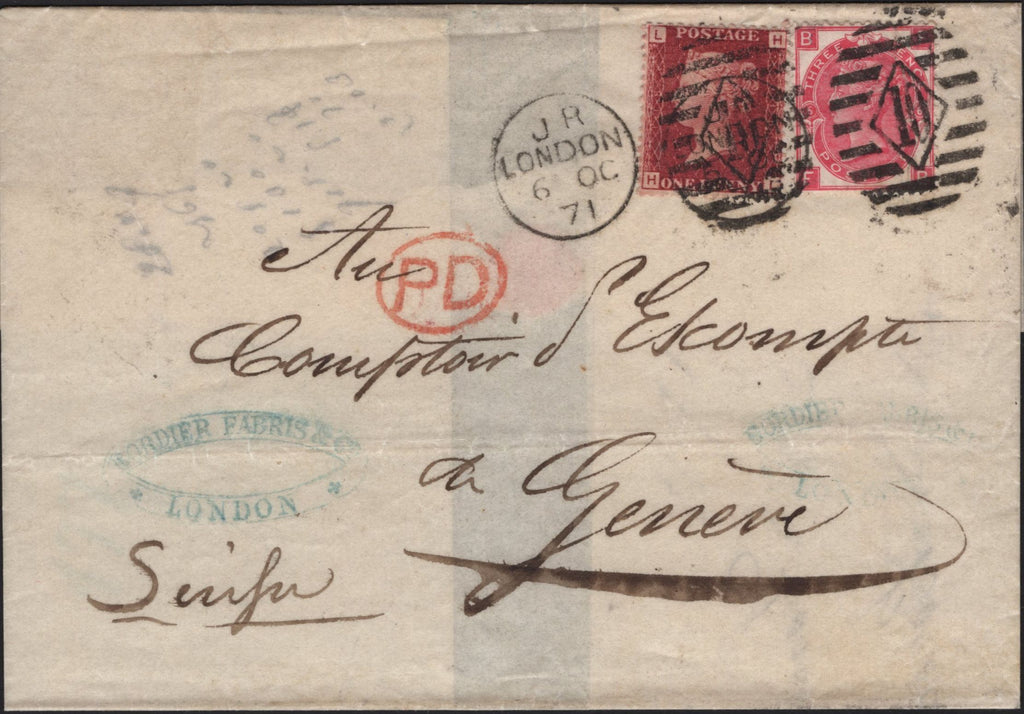 L POSTAGE H
H ONE PENNY L
B THREE PENCE
F B
J R
LONDON
6 OC
71
10
PD
Au
Comptoir d'Escompte
de Genève
CORDIER FABRIS & Co
LONDON
CORDIER
Suisse